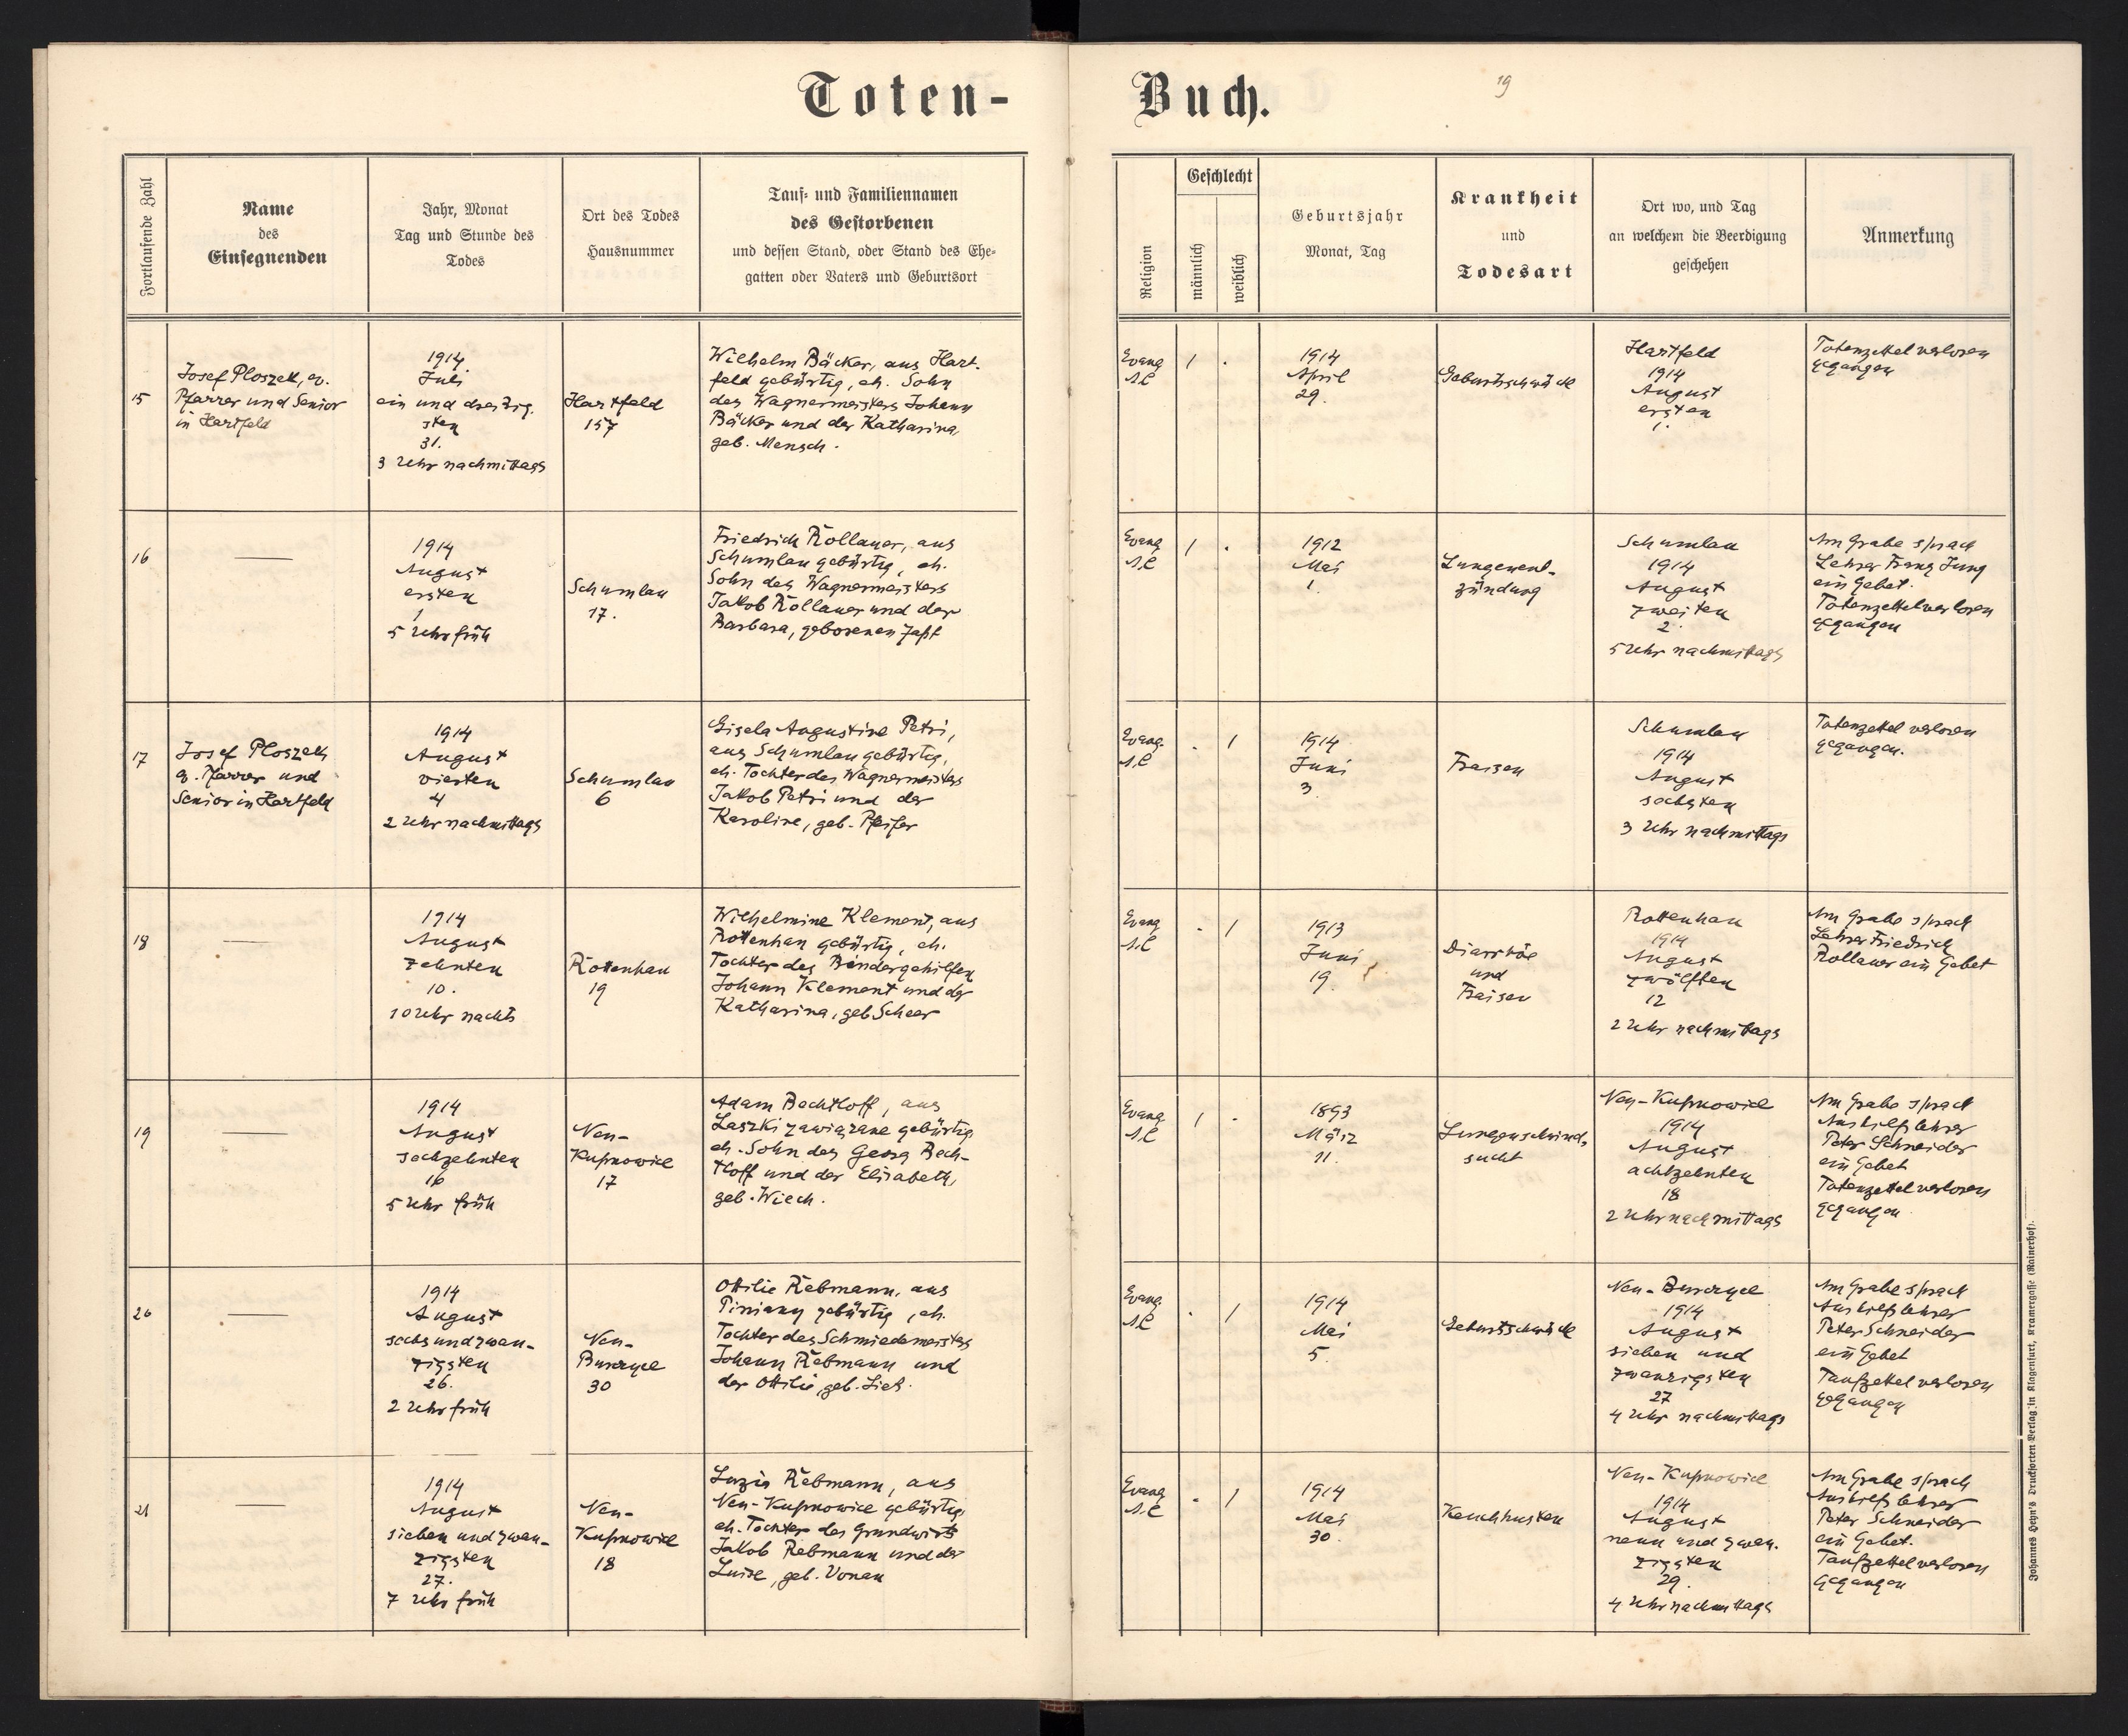 Toten-
Buch.
19
Fortlaufende Zahl
Name
des
Einsegnenden
Jahr, Monat
Tag und Stunde des
Todes
Ort des Todes
Hausnummer
Tauf- und Familiennamen
des Gestorbenen
und dessen Stand, oder Stand des Ehe-
gatten oder Vaters und Geburtsort
Religion
Geschlecht
männlich
weiblich
Geburtsjahr
Monat, Tag
Krankheit
und
Todesart
Ort wo, und Tag
an welchem die Beerdigung
geschehen
Anmerkung
15
Josef Ploszek, ev.
Pfarrer und Senior
in Hartfeld
1914.
Juli
ein und dreizig.
sten
31.
3 Uhr nachmittags
Hartfeld
157
Wilhelm Bäcker, aus Hart-
feld gebürtig, eh. Sohn
des Wagnermeisters Johann
Bäcker und der Katharina,
geb. Mensch.
Evang
A.C
1 .
1914
April
29.
Geburtsschwäche
Hartfeld
1914
August
ersten
1.
Totenzettel verloren
gegangen
16
—
1914
August
ersten
1
5 Uhr früh
Schumlau
17.
Friedrich Rollauer, aus
Schumlau gebürtig, eh.
Sohn des Wagnermeisters
Jakob Rollauer und der
Barbara, geborenen
Evang
A.C
1 .
1912
Mai
1.
Lungenent-
zündung
Schumlau
1914
August
zweiten
2.
5 Uhr nachmittags
Am Grabe sprach
Lehrer Franz Jung
ein Gebet.
Totenzettel verloren
gegangen
17
Josef Ploszek
ev. Pfarrer und
Senior in Hartfeld
1914
August
vierten
4
2 Uhr nachmittags
Schumlau
6
Gisela Augustine Petri,
aus Schumlau gebürtig,
eh. Tochter des Wagnermeisters
Jakob Petri und der
Karoline, geb. Pfeifer
Evang.
A.C
. 1
1914
Juni
3
Fraisen
Schumlau
1914
August
sechsten
3 Uhr nachmittags
Totenzettel verloren
gegangen.
18
—
1914
August
zehnten
10.
10 Uhr nachts
Rottenhan
19
Wilhelmine Klement, aus
Rottenhan gebürtig, eh.
Tochter des Bindergehilfen
Johann Klement und der
Katharina, geb Scheer
Evang
A.C
. 1
1913
Juni
19.
Diarrhöe
und
Fraisen
Rottenhan
1914
August
zwölften
12
2 Uhr nachmittags
Am Grabe sprach
Lehrer Friedrich
Rollauer ein Gebet
19
—
1914
August
sechzehnten
16
5 Uhr früh
Neu-
Kupnowice
17
Adam Bechtloff, aus
Laszki zawiązane gebürtig
eh. Sohn des Georg Bech-
tloff und der Elisabeth,
geb. Wiech.
Evang
A.C
1 .
1893
März
11.
Lungenschwind-
sucht
Neu-Kupnowice
1914
August
achtzehnten
18
2 Uhr nachmittags
Am Grabe sprach
Aushilfslehrer
Peter Schneider
ein Gebet
Totenzettel verloren
gegangen
20
—
1914
August
sechs und zwan-
zigsten
26.
2 Uhr früh
Neu-
Burczyce
30
Ottilie Rebmann, aus
Piniany gebürtig, eh.
Tochter des Schmiedemeisters
Johann Rebmann und
der Ottilie, geb.
Evang.
A.C
. 1
1914
Mai
5.
Geburtsschwäche
Neu-Burczyce
1914
August
sieben und
zwanzigsten
27
4 Uhr nachmittags
Am Grabe sprach
Aushilfslehrer
Peter Schneider
ein Gebet
Taufzettel verloren
gegangen
21
—
1914
August
sieben und zwan-
zigsten
27.
7 Uhr früh
Neu-
Kupnowice
18
Luzie Rebmann, aus
Neu-Kupnowice gebürtig,
eh. Tochter des Grundwirts
Jakob Rebmann und der
Luise, geb. Vonau
Evang
A.C
. 1
1914
Mai
30.
Keuchhusten
Neu-Kupnowice
1914
August
neun und zwan-
zigsten
29.
4 Uhr nachmittags
Am Grabe sprach
Aushilfslehrer
Peter Schneider
ein Gebet.
Taufzettel verloren
gegangen
Johannes Heyn's Drucksorten Verlag in Klagenfurt, Kramergasse (Rainerhof).